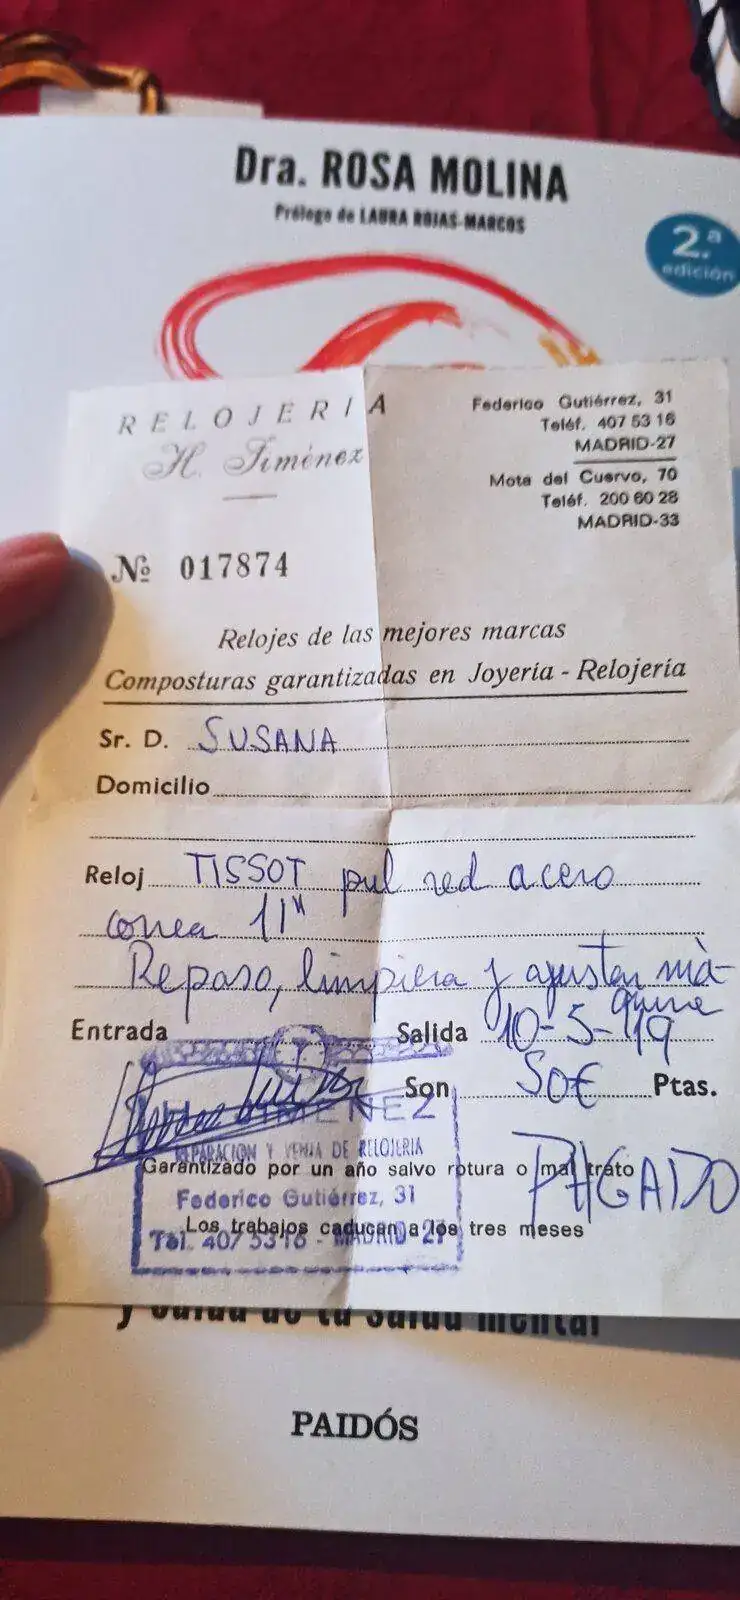 Dra. ROSA MOLINA
Prólogo de LAURA ROJAS-MARCOS
2.ª
edición
RELOJERIA
H. Jiménez
Federico Gutiérrez, 31
Teléf. 407 53 16
MADRID-27
Mota del Cuervo, 70
Teléf. 200 60 28
MADRID-33
Nº 017874
Relojes de las mejores marcas
Composturas garantizadas en Joyería - Relojería
Sr. D. SUSANA
Domicilio
Reloj TISSOT pul red acero
correa 11"
Repaso, limpieza y ajustar má-
quina
Entrada
Salida 10-5-19
Son 50€ Ptas.
JIMENEZ
REPARACION Y VENTA DE RELOJERIA
Garantizado por un año salvo rotura o mal trato
PAGADO
Federico Gutiérrez, 31
Los trabajos caducan a los tres meses
Tel. 407 53 16 - MADRID-27
y cuida de tu salud mental
PAIDÓS